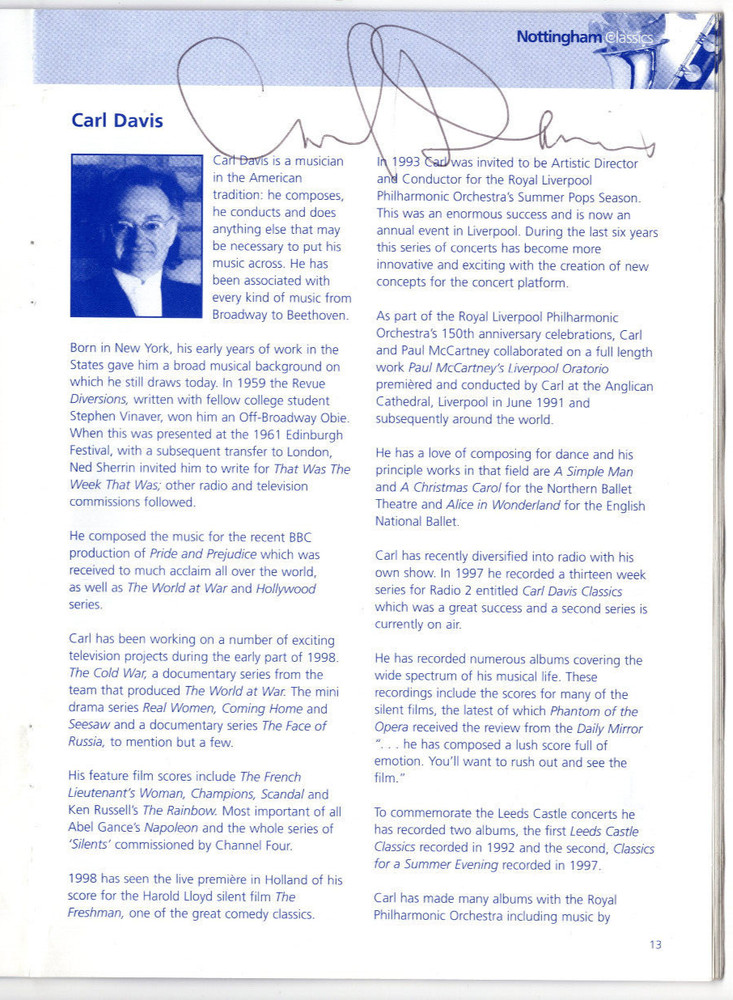 Nottingham Classics
Carl Davis
Carl Davis
Carl Davis is a musician
in the American
tradition: he composes,
he conducts and does
anything else that may
be necessary to put his
music across. He has
been associated with
every kind of music from
Broadway to Beethoven.
Born in New York, his early years of work in the
States gave him a broad musical background on
which he still draws today. In 1959 the Revue
Diversions, written with fellow college student
Stephen Vinaver, won him an Off-Broadway Obie.
When this was presented at the 1961 Edinburgh
Festival, with a subsequent transfer to London,
Ned Sherrin invited him to write for That Was The
Week That Was; other radio and television
commissions followed.
He composed the music for the recent BBC
production of Pride and Prejudice which was
received to much acclaim all over the world,
as well as The World at War and Hollywood
series.
Carl has been working on a number of exciting
television projects during the early part of 1998.
The Cold War, a documentary series from the
team that produced The World at War. The mini
drama series Real Women, Coming Home and
Seesaw and a documentary series The Face of
Russia, to mention but a few.
His feature film scores include The French
Lieutenant's Woman, Champions, Scandal and
Ken Russell's The Rainbow. Most important of all
Abel Gance's Napoleon and the whole series of
'Silents' commissioned by Channel Four.
1998 has seen the live première in Holland of his
score for the Harold Lloyd silent film The
Freshman, one of the great comedy classics.
In 1993 Carl was invited to be Artistic Director
and Conductor for the Royal Liverpool
Philharmonic Orchestra's Summer Pops Season.
This was an enormous success and is now an
annual event in Liverpool. During the last six years
this series of concerts has become more
innovative and exciting with the creation of new
concepts for the concert platform.
As part of the Royal Liverpool Philharmonic
Orchestra's 150th anniversary celebrations, Carl
and Paul McCartney collaborated on a full length
work Paul McCartney's Liverpool Oratorio
premièred and conducted by Carl at the Anglican
Cathedral, Liverpool in June 1991 and
subsequently around the world.
He has a love of composing for dance and his
principle works in that field are A Simple Man
and A Christmas Carol for the Northern Ballet
Theatre and Alice in Wonderland for the English
National Ballet.
Carl has recently diversified into radio with his
own show. In 1997 he recorded a thirteen week
series for Radio 2 entitled Carl Davis Classics
which was a great success and a second series is
currently on air.
He has recorded numerous albums covering the
wide spectrum of his musical life. These
recordings include the scores for many of the
silent films, the latest of which Phantom of the
Opera received the review from the Daily Mirror
". . . he has composed a lush score full of
emotion. You'll want to rush out and see the
film."
To commemorate the Leeds Castle concerts he
has recorded two albums, the first Leeds Castle
Classics recorded in 1992 and the second, Classics
for a Summer Evening recorded in 1997.
Carl has made many albums with the Royal
Philharmonic Orchestra including music by
13